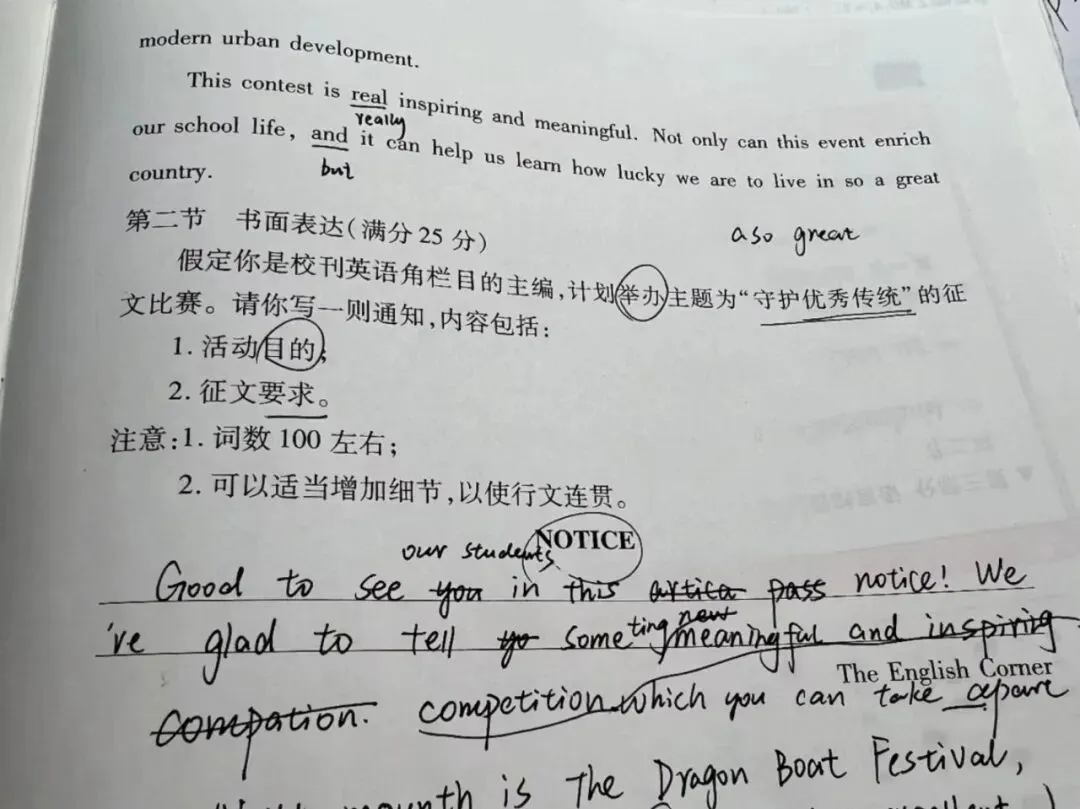 modern urban development.
This contest is real inspiring and meaningful. Not only can this event enrich
really
our school life, and it can help us learn how lucky we are to live in so a great
but
country.
a so great
第二节 书面表达(满分25分)
假定你是校刊英语角栏目的主编,计划举办主题为“守护优秀传统”的征
文比赛。请你写一则通知,内容包括:
1. 活动目的;
2. 征文要求。
注意:1. 词数100左右;
2. 可以适当增加细节,以使行文连贯。
NOTICE
our students
Good to see you in this artica pass notice! We
've glad to tell yo someting new meaningful and inspiring
The English Corner
compation. competition which you can take apart
mounth is The Dragon Boat Festival,